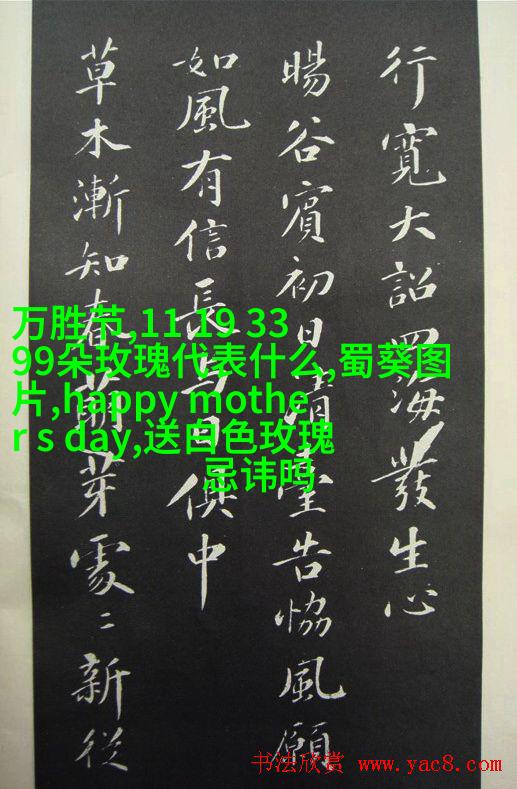 行寬大詔四海發生心
暘谷賓初日清臺告恊風願
如風有信長与日俱中
草木漸知春萌芽處〻新從
万胜节,11 19 33
99朵玫瑰代表什么,蜀葵图
片,happy mothe
r s day,送白色玫瑰
忌讳吗
书法欣赏 www.yac8.com